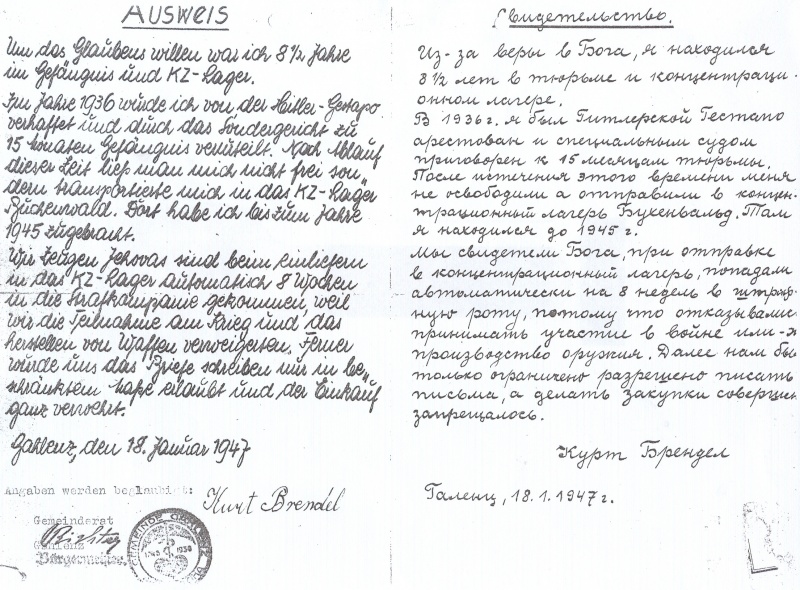 AUSWEIS
Um das Glaubens willen war ich 8½ Jahre
im Gefängnis und KZ-Lager.
Im Jahre 1936 wurde ich von der Hitler-Gestapo
verhaftet und durch das Sondergericht zu
15 Monaten Gefängnis verurteilt. Nach Ablauf
dieser Zeit ließ man mich nicht frei son„
dern transportierte mich in das KZ-Lager
Buchenwald. Dort habe ich bis zum Jahre
1945 zugebracht.
Wir Zeugen Jehovas sind beim einliefern
in das KZ-Lager automatisch 8 Wochen
in die Strafkompanie gekommen, weil
wir die Teilnahme am Krieg und das
herstellen von Waffen verweigerten. Ferner
wurde uns das Briefe schreiben nur in be„
schränktem Maße erlaubt und der Einkauf
ganz verwehrt.
Gahlenz, den 18. Januar 1947
Angaben werden beglaubigt:
Kurt Brendel
Gemeinderat
Gahlenz
Bürgermeister
GEMEINDE GAHLENZ
Свидетельство.
Из-за веры в Бога, я находился
8½ лет в тюрьме и концентраци-
онном лагере.
В 1936г. я был Гитлерской Гестапо
арестован и специальным судом
приговорен к 15 месяцам тюрьмы.
После истечения этого времени меня
не освободили а отправили в концен-
трационный лагерь Бухенвальд. Там
я находился до 1945 г.
Мы свидетели Бога, при отправке
в концентрационный лагерь, попадали
автоматически на 8 недель в штраф-
ную роту, потому что отказывались
принимать участие в войне или
производство оружия. Далее нам бы
только ограничено разрешено писать
письма, а делать закупки совершен
запрещалось.
Курт Брендел
Галенц, 18.1.1947г.